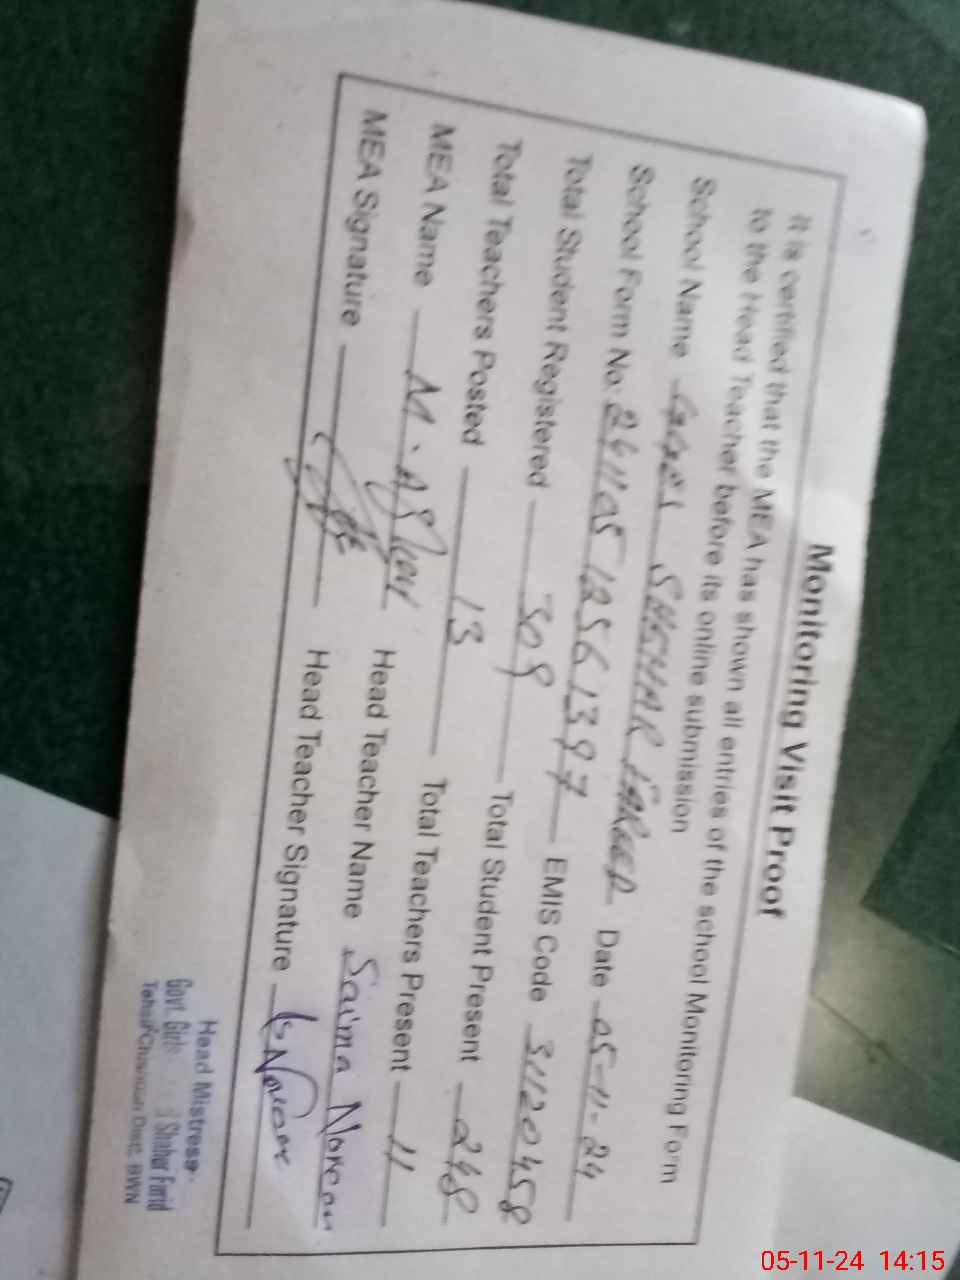 Monitoring Visit Proof
It is certified that the MEA has shown all entries of the school Monitoring Form
to the Head Teacher before its online submission
School Name SHEHAR FAREED Date 05-11-24
School Form No. 24110512561397 EMIS Code 31120458
Total Student Registered 309 Total Student Present 248
Total Teachers Posted 13 Total Teachers Present 11
MEA Name M. Head Teacher Name Saima Noreen
MEA Signature Head Teacher Signature
Head Mistress
Govt. Girls Shaher Farid
Tehsil Chishtian Distt. BWN
05-11-24 14:15